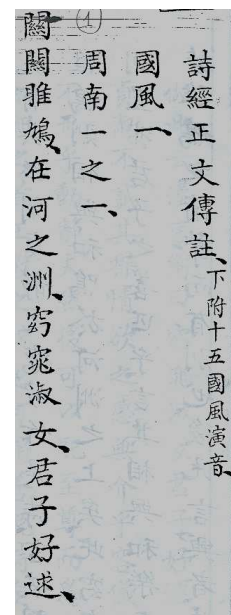 ①
詩經正文傳註、下附十五國風演音、
國風一、
周南一之一、
關關雎鳩、在河之洲、窈窕淑女、君子好逑、